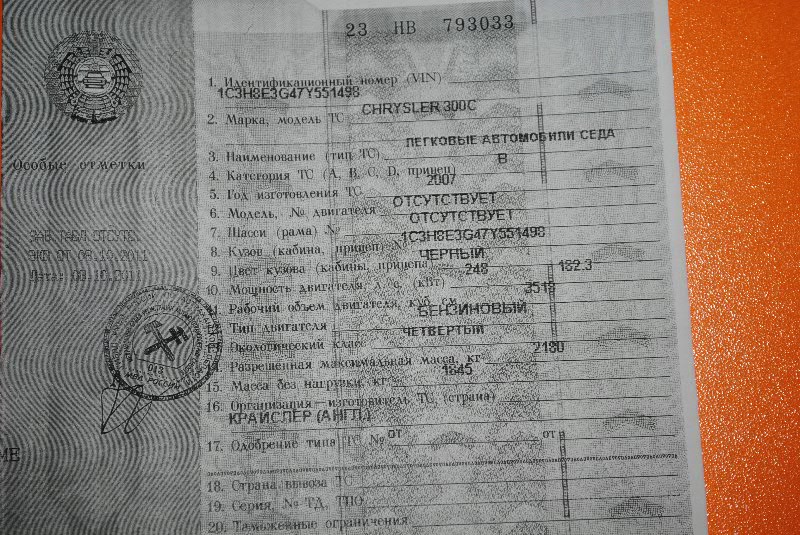 23 НВ 793033
1. Идентификационный номер (VIN)
1C3H8E3G47Y551498
2. Марка, модель ТС CHRYSLER 300C
3. Наименование (тип ТС) ЛЕГКОВЫЕ АВТОМОБИЛИ СЕДА
4. Категория ТС (А, В, С, D, прицеп) В
5. Год изготовления ТС 2007
6. Модель, № двигателя ОТСУТСТВУЕТ
7. Шасси (рама) № ОТСУТСТВУЕТ
8. Кузов (кабина, прицеп) № 1C3H8E3G47Y551498
9. Цвет кузова (кабины, прицепа) ЧЕРНЫЙ
10. Мощность двигателя, л. с. (кВт) 248 182.3
11. Рабочий объем двигателя, куб. см 3518
Тип двигателя БЕНЗИНОВЫЙ
Экологический класс ЧЕТВЕРТЫЙ
14. Разрешенная максимальная масса, кг 2180
15. Масса без нагрузки, кг 1845
16. Организация-изготовитель ТС, (страна)
КРАЙСЛЕР (АНГЛ.)
17. Одобрение типа ТС № от от
18. Страна вывоза ТС
19. Серия, № ТД, ТПО
20. Таможенные ограничения
Особые отметки
ЗАВ.ТАБЛ.ОТСУТС.
ЭКП ОТ 08.10.2011
Дата: 08.10.2011
МВД РОССИИ
МЕ